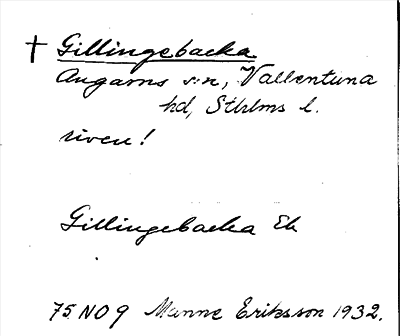 † Gillingebacka
Angarns s:n, Vallentuna
hd, Sthlms l.
riven!
Gillingebacka Ek
75 NO 9 Manne Eriksson 1932.